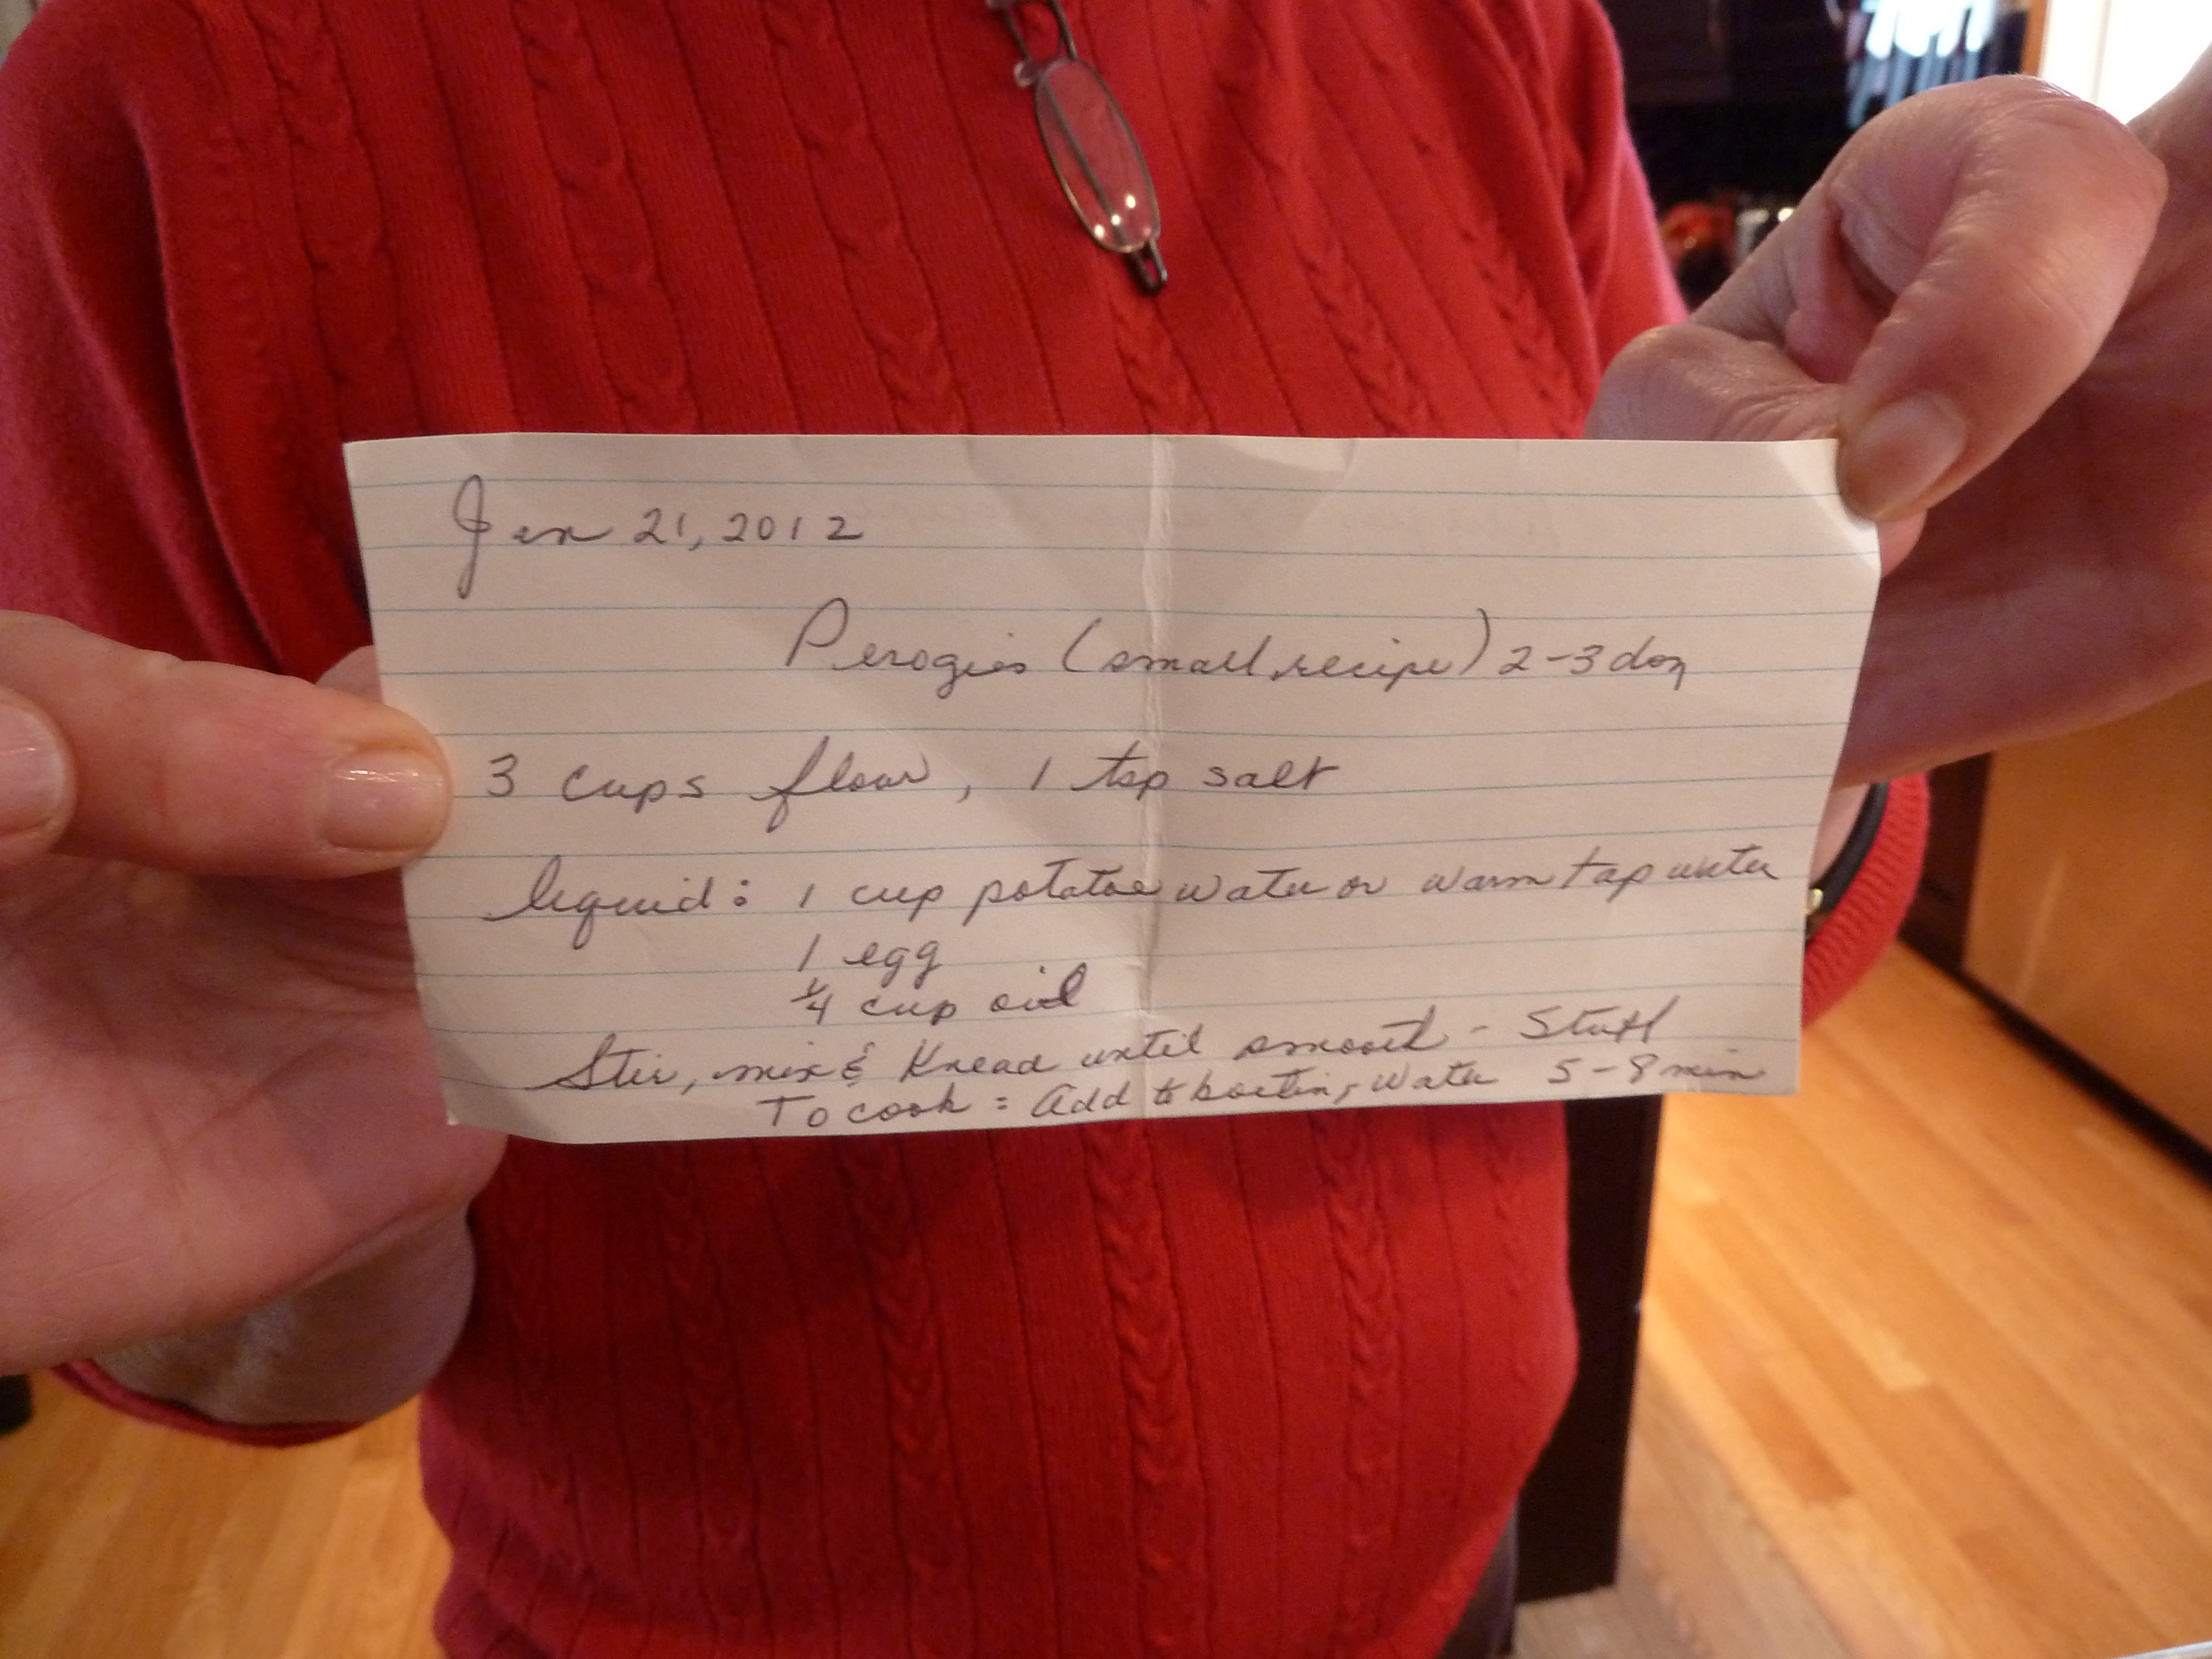 Jan 21, 2012
Perogies (small recipe) 2-3 doz
3 cups flour, 1 tsp salt
liquid: 1 cup potatoe water or warm tap water
1 egg
1/4 cup oil
Stir, mix & Knead until smooth - Stuff
To cook: Add to boiling water 5-8 min